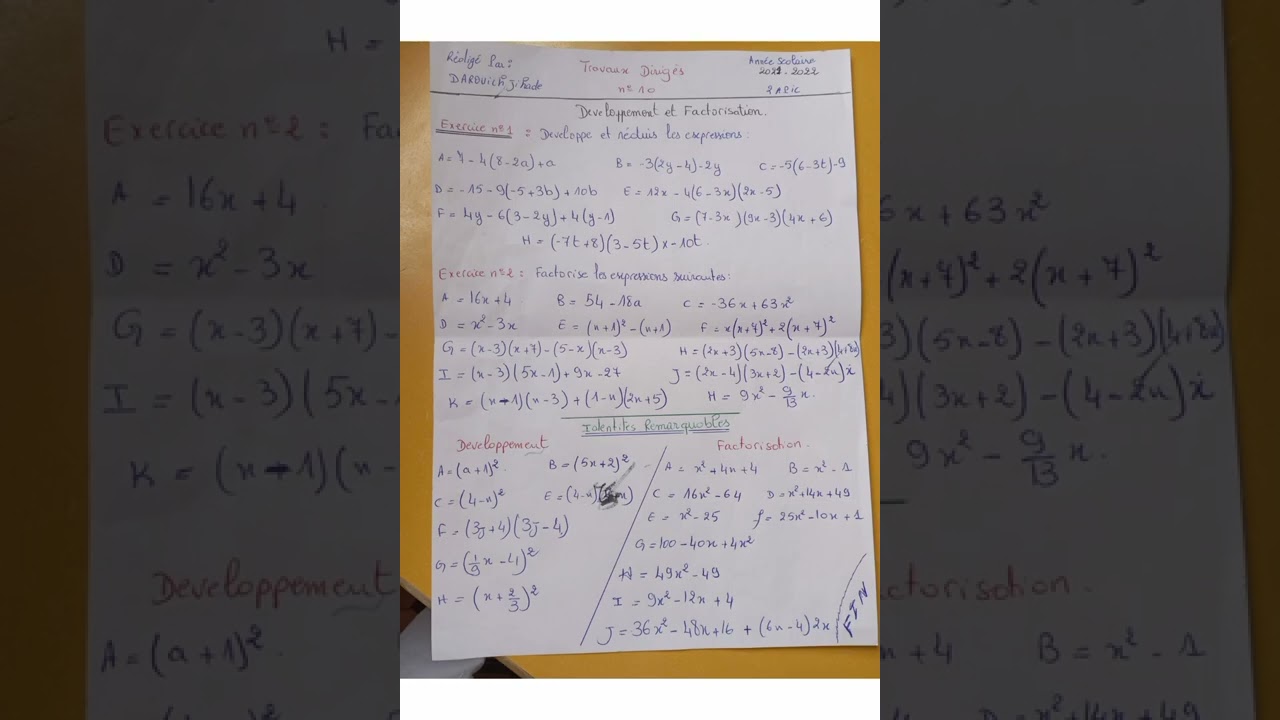 Rédigé Par:
DAROUICH Jihade
Travaux Dirigés
n° 10
Année Scolaire
2021-2022
2 APIC
Developpement et Factorisation.
Exercice n°1 : Developpe et réduis les expressions:
A = 7 - 4(8-2a)+a B = -3(2y-4)-2y C = -5(6-3t)-9
D = -15-9(-5+3b)+10b E = 12x - 4(6-3x)(2x-5)
F = 4y-6(3-2y)+4(y-1) G = (7-3x)(9x-3)(4x+6)
H = (-7t+8)(3-5t)x-10t.
Exercice n°2 : Factorise les expressions suivantes:
A = 16x+4. B = 54-18a C = -36x+63x²
D = x²-3x E = (x+1)²-(x+1) F = x(x+7)²+2(x+7)²
G = (x-3)(x+7)-(5-x)(x-3) H = (2x+3)(5x-8)-(2x+3)(4+8x)
I = (x-3)(5x-1)+9x-27 J = (2x-4)(3x+2)-(4-2x)x
K = (x-1)(x-3)+(1-x)(2x+5) H = 9x² - 9/13 x.
Identites Remarquables
Developpement
A = (a+1)². B = (5x+2)²
C = (4-x)² E = (4-x)
F = (3y+4)(3y-4)
G = (1/9 x - 4)²
H = (x + 2/3)²
Factorisation.
A = x²+4x+4 B = x²-1
C = 16x²-64 D = x²+14x+49
E = x²-25 f = 25x²-10x+1
G = 100-40x+4x²
H = 49x²-49
I = 9x²-12x+4
J = 36x²-48x+16 + (6x-4)2x
FIN